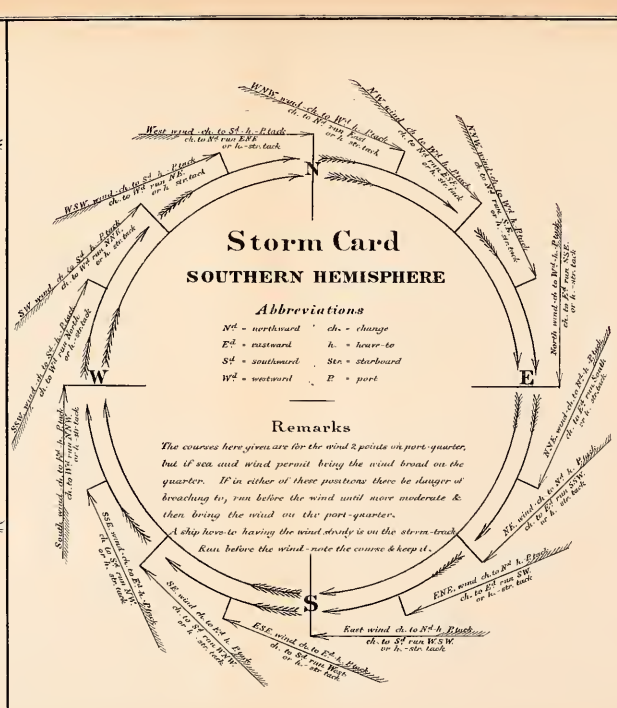 Storm Card
SOUTHERN HEMISPHERE
Abbreviations
Nd = northward
Ed = eastward
Sd = southward
Wd = westward
ch. = change
h. = heave-to
Str. = starboard
P. = port
Remarks
The courses here given are for the wind 2 points on port-quarter,
but if sea and wind permit bring the wind broad on the
quarter. If in either of these positions there be danger of
breaching to, run before the wind until more moderate &
then bring the wind on the port-quarter.
A ship hove-to having the wind steady is on the storm-track
Run before the wind-note the course & keep it.
N
E
S
W
West wind-ch. to Sd-h.-P. tack
ch. to Nd run ENE
or h.-str. tack
WNW. wind-ch. to Wd h.-P. tack
ch. to Nd run East
or h.-str. tack
NW. wind-ch. to Wd h.-P. tack
ch. to Nd run ESE.
or h.-str. tack
NNW. wind-ch. to Wd h.-P. tack
ch. to Nd run S.E.
or h.-str. tack
North wind-ch. to Wd-h.-P. tack
ch. to Ed run SSE.
or h.-str. tack
NNE. wind-ch. to Nd h. P. tack
ch. to Ed run South
or h.-str. tack
NE. wind-ch. to Nd. h. P. tack
ch. to Ed run SSW.
or h.-str. tack
ENE. wind ch. to Nd h. P. tack
ch. to Ed run SW.
or h.-str. tack
East wind-ch. to Nd-h. P. tack
ch. to Sd run W.S.W.
or h.-str. tack
ESE. wind ch. to Ed h. P. tack
ch. to Sd run West.
or h.-str. tack
SE. wind ch. to Ed h. P. tack
ch. to Sd run WNW.
or h.-str. tack
SSE. wind-ch. to Ed h. P. tack
ch. to Sd run NW.
or h.-str. tack
South wind-ch. to Ed h. P. tack
ch. to Wd run NNW.
or h.-str. tack
SSW. wind-ch. to Sd h. P. tack
ch. to Wd run North
or h.-str. tack
SW. wind ch. to Sd h. P. tack
ch. to Wd run NNE.
or h.-str. tack
WSW. wind-ch. to Sd h. P. tack
ch. to Wd run NE.
or h.-str. tack